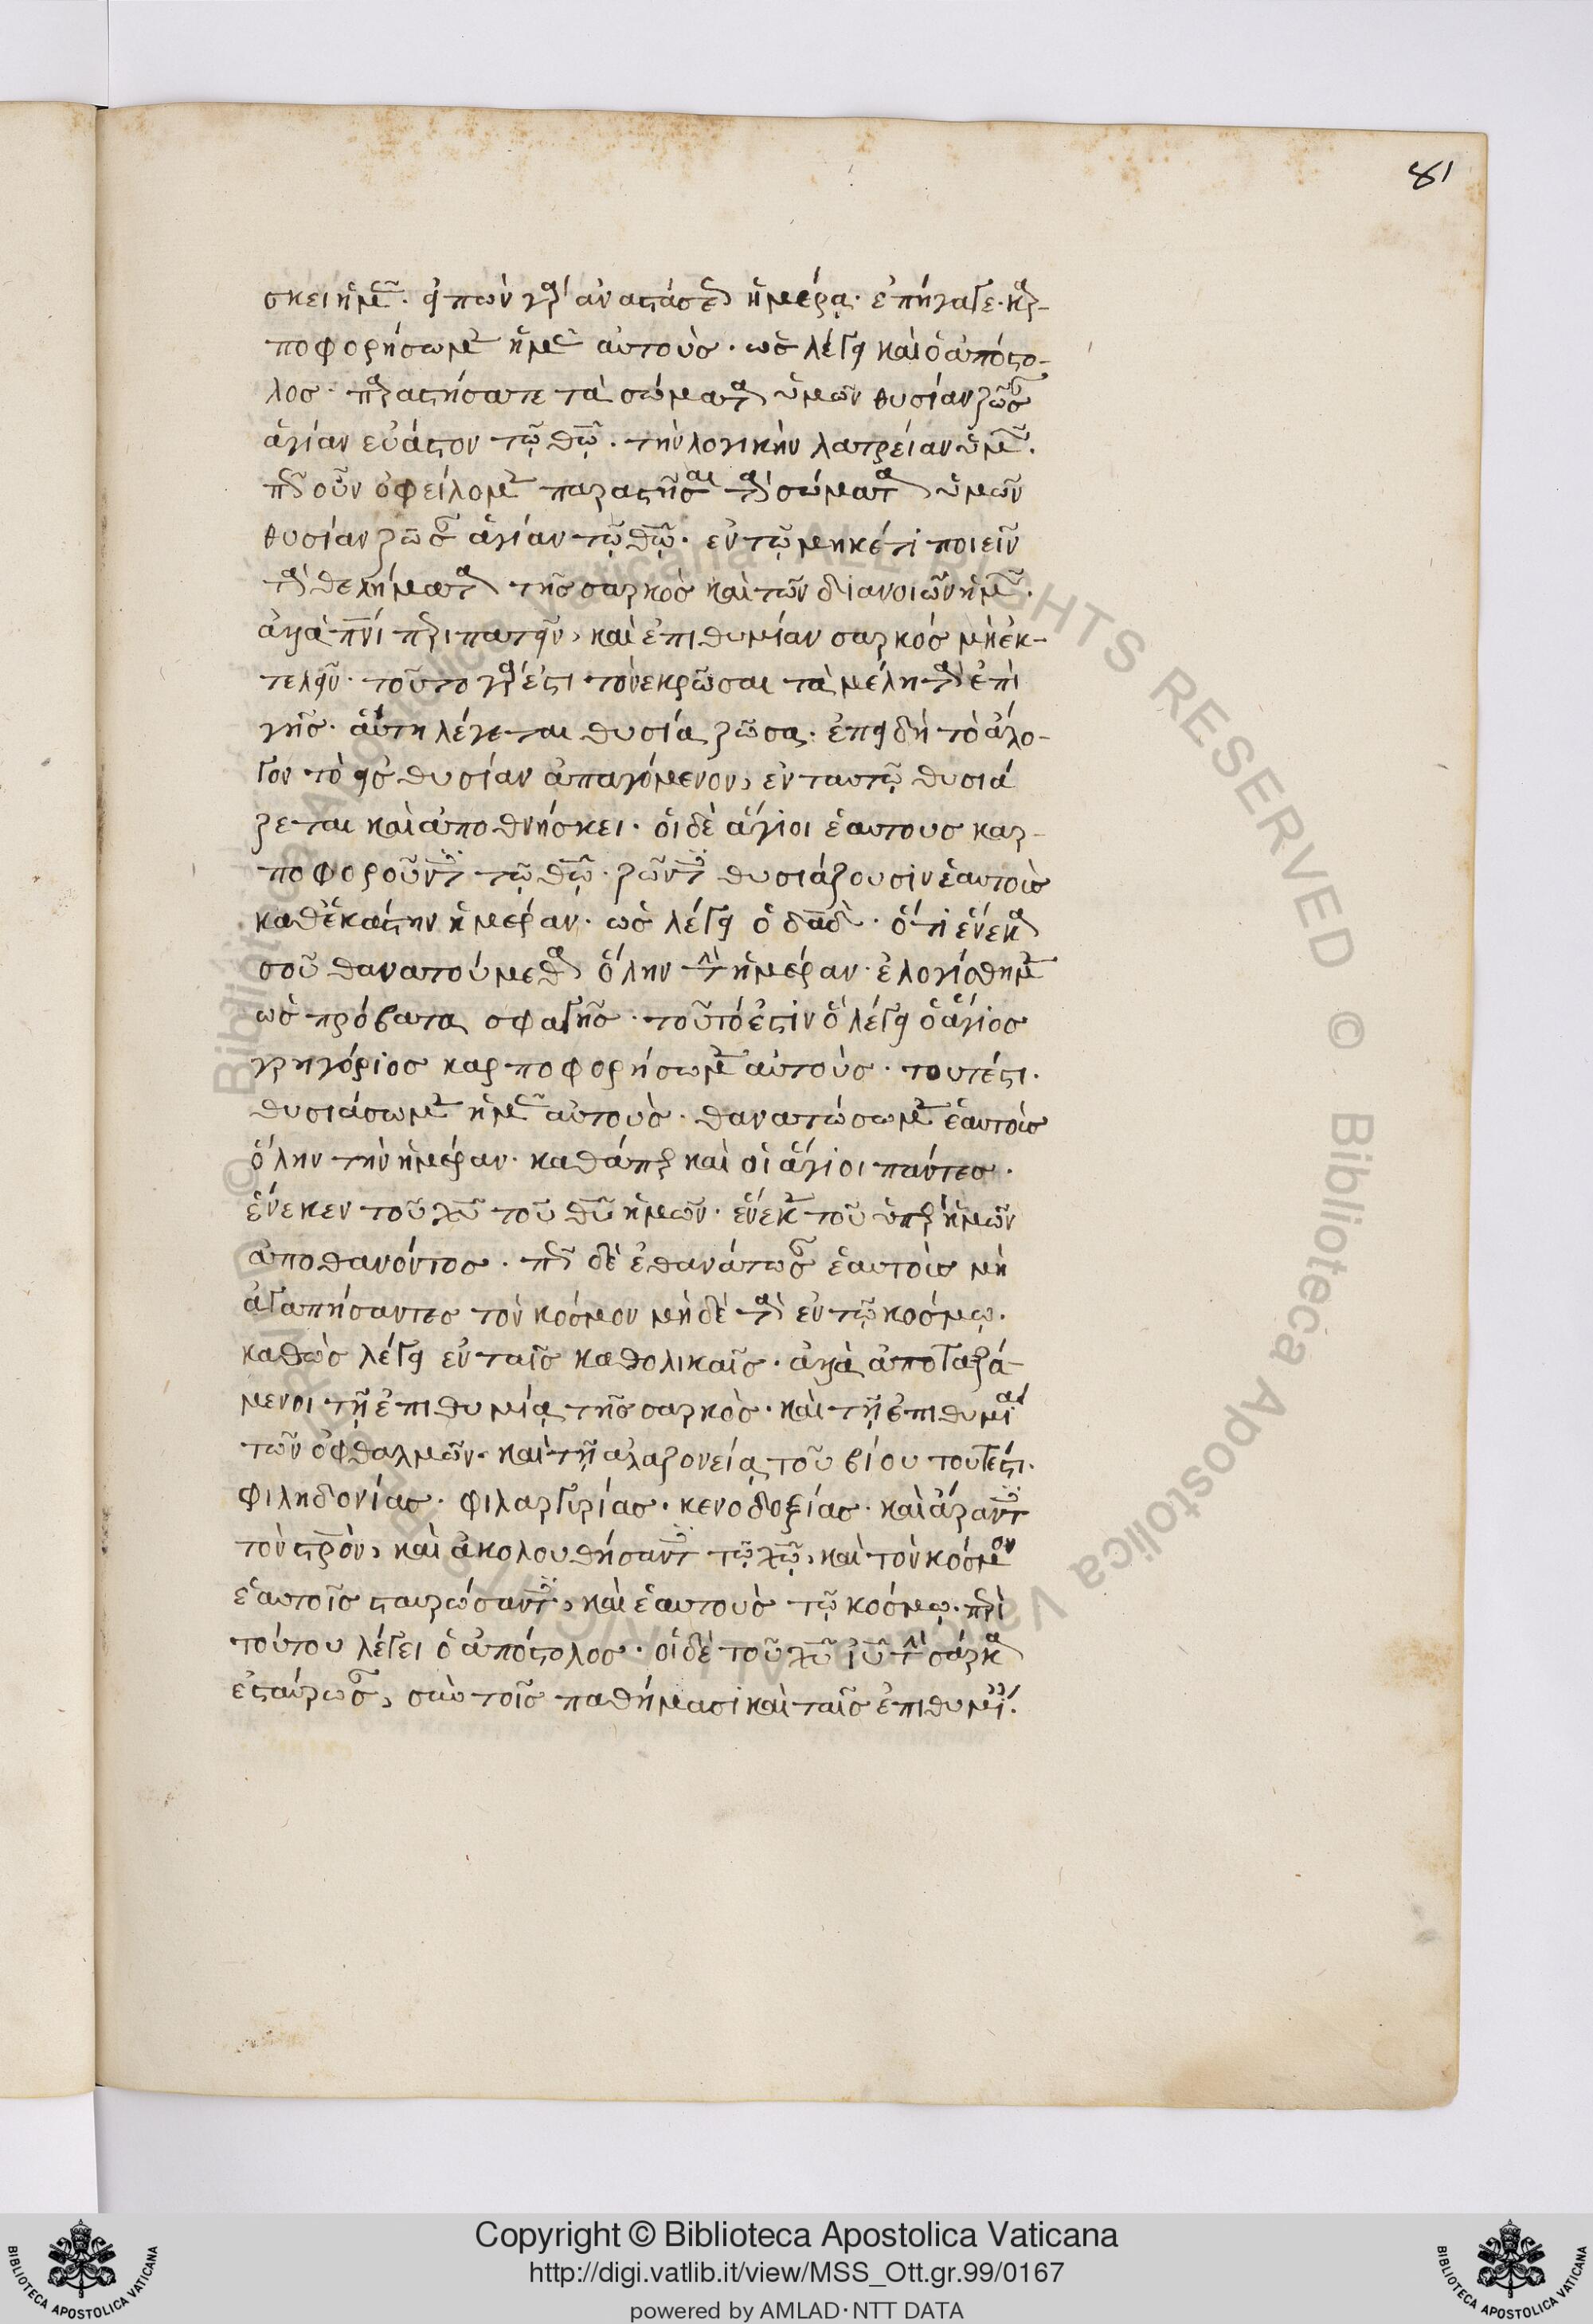 81
σκει ἡμᾶς. εἰπὼν γὰρ ἀναστάσεως ἡμέρα. ἐπήγαγε. καρ-
ποφορήσωμεν ἡμᾶς αὐτούς. ὡς λέγει καὶ ὁ ἀπόστο-
λος. παραστήσατε τὰ σώματα ὑμῶν θυσίαν ζῶσαν
ἁγίαν εὐάρεστον τῷ θῷ. τὴν λογικὴν λατρείαν ὑμῶν.
πῶς οὖν ὀφείλομεν παραστῆσαι τὰ σώματα ὑμῶν
θυσίαν ζῶσαν ἁγίαν τῷ θῷ. ἐν τῷ μηκέτι ποιεῖν
τὰ θελήματα τῆς σαρκὸς καὶ τῶν διανοιῶν ἡμῶν.
ἀλλὰ πνι περιπατεῖν, καὶ ἐπιθυμίαν σαρκός μὴ ἐκ-
τελεῖν. τοῦτο γάρ ἐστι τὸ νεκρῶσαι τὰ μέλη τὰ ἐπὶ
γῆς. αὕτη λέγεται θυσία ζῶσα. ἐπειδὴ τὸ ἄλο-
γον τὸ εἰς θυσίαν ἀπαγόμενον, ἐν ταυτῷ θυσιά
ζεται καὶ ἀποθνήσκει. οἱ δὲ ἅγιοι ἑαυτους καρ-
ποφοροῦντες τῷ θῷ. ζῶντες θυσιάζουσιν ἑαυτοὺς
καθ' ἑκάστην ἡμέραν. ὡς λέγει ὁ δαδ. ὅτι ἕνεκα
σοῦ θανατούμεθα ὅλην τὴν ἡμέραν. ἐλογίσθημεν
ὡς πρόβατα σφαγῆς. τοῦτό ἐστιν ὃ λέγει ὁ ἅγιος
γρηγόριος καρποφορήσωμεν αὐτούς. τουτέστι.
θυσιάσωμεν ἡμᾶς αὐτούς. θανατώσωμεν ἑαυτοὺς
ὅλην τὴν ἡμέραν. καθάπερ καὶ οἱ ἅγιοι πάντες.
ἕνεκεν τοῦ χυ τοῦ θυ ἡμῶν. ἕνεκεν τοῦ ὑπὲρ ἡμῶν
ἀποθανόντος. πῶς δὲ ἐθανάτωσαν ἑαυτοὺς μὴ
ἀγαπήσαντες τὸν κόσμον μηδὲ τὰ ἐν τῷ κόσμῳ.
καθὼς λέγει ἐν ταῖς καθολικαῖς. ἀλλὰ ἀποταξά-
μενοι τῇ ἐπιθυμίᾳ τῆς σαρκὸς. καὶ τῇ ἐπιθυμίᾳ
τῶν ὀφθαλμῶν. καὶ τῇ ἀλαζονείᾳ τοῦ βίου τουτέστι.
φιληδονίας. φιλαργυρίας. κενοδοξίας. καὶ ἄραντες
τὸν στρον, καὶ ἀκολουθήσαντες τῷ χῷ, καὶ τὸν κόσμον
ἑαυτοῖς σταυρώσαντες, καὶ ἑαυτοὺς τῷ κόσμῳ. περὶ
τούτου λέγει ὁ ἀπόστολος. οἱ δὲ τοῦ χυ ιυ τὴν σάρκα
ἐσταύρωσαν, σὺν τοῖς παθήμασι καὶ ταῖς ἐπιθυμίαις.
Copyright © Biblioteca Apostolica Vaticana
http://digi.vatlib.it/view/MSS_Ott.gr.99/0167
powered by AMLAD·NTT DATA